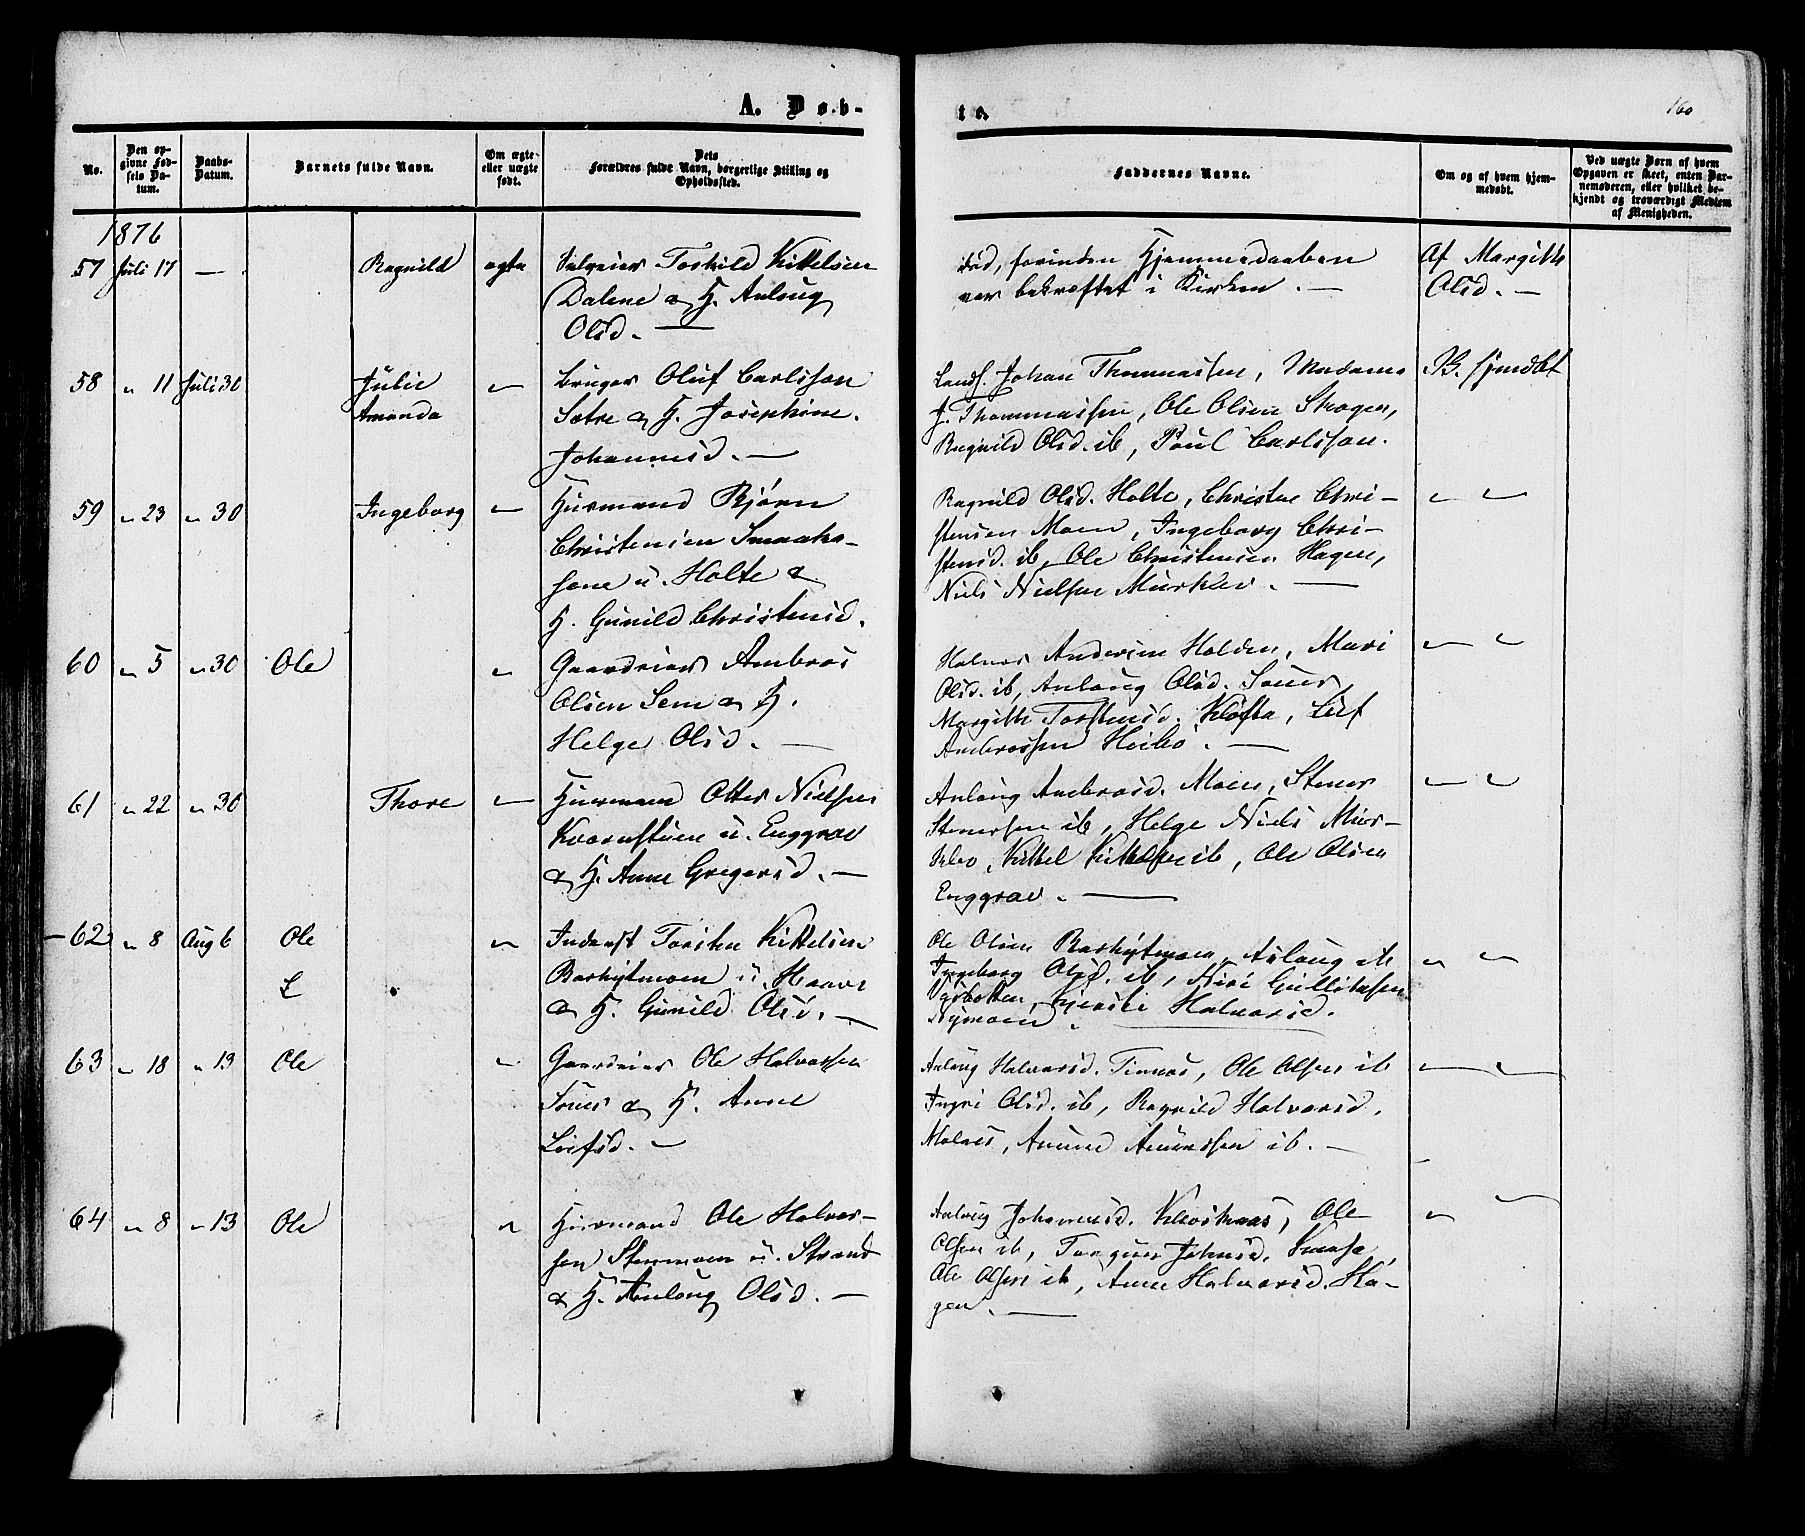 A. Døb-
te.
160
No.
Den op-
givne Fød-
sels Da-
tum.
Daabs-
Datum.
Barnets fulde Navn.
Om ægte-
eller uægte
født.
Dets
Forældres fulde Navn, borgerlige Stilling og
Opholdssted.
Faddernes Navne.
Om og af hvem hjem-
medøbt.
Ved uægte Børn af hvem
Opgaven er skeet, enten Bar-
nemoderen, eller hvilket be-
kjendt og troværdigt Medlem
af Menigheden.
1876
57 Juli 17 — Ragnild ægte Selveier Torkild Kittelsen
Dalene & H. Aslaug
Olsd. —
død, forinden Hjemmedaaben
var bekræftet i Kirken. —
Af Margith
Olsd. —
58 " 11 Juli 30 Julie
Amanda
" Bruger Oluf Carlsson
Sætre & H. Josephine
Johannesd. —
Landh. Johan Thommassen, Madame
J. Thommassen, Ole Olsen Skogen,
Ragnild Olsd. ib, Poul Carlsson.
B. hjmdbt
59 " 23 " 30 Ingeborg " Husmand Bjørn
Christensen
u. Holte &
H. Gunild Christensd.
Ragnild Olsd. Holte, Christen Chri-
stensen Moen, Ingeborg Chri-
stensd. ib, Ole Christensen Hagen,
Niels Nielsen Murklev. —
" "
60 " 5 " 30 Ole " Gaardeier Ambros
Olsen Sem & H.
Helge Olsd. —
Halvor Andersen Holden, Mari
Olsd. ib, Aslaug Olsd. Sauer,
Margith Torstensd. Kløfta, Leif
Ambrossen Heibø. —
" "
61 " 22 " 30 Thore " Husmand Otter Nielsen
Kværnstuen u. Enggrav
& H. Anne Gregersd. —
Aslaug Ambrosd. Moen, Stener
Stenersen ib, Helge Niels Mur-
klev, Kittel Kittelsen ib, Ole Olsen
Enggrav. —
" "
62 " 8 Aug 6 Ole " Inderst Torsten Kittelsen
Barhytmoen u.
& H. Gunild Olsd. —
Ole Olsen Barhytmoen, Aslaug
Ingeborg Olsd. ib,
Halvorsd.
Nymoen. —
" "
63 " 18 " 13 Ole " Gaardeier Ole Halvorsen
Sauer & H. Anne
Leifsd. —
Aslaug Halvorsd. Tinnes, Ole Olsen ib
Ingri Olsd. ib, Ragnild Halvorsd.
Anund Anundsen ib. —
" "
64 " 8 " 13 Ole " Husmand Ole Halvor-
sen Stenmoen u. Strand
& H. Aslaug Olsd. —
Aslaug Johannesd. Ole
Olsen ib, Johnsd.
Ole Olsen ib, Anne Halvorsd. Ha-
gen. —
"